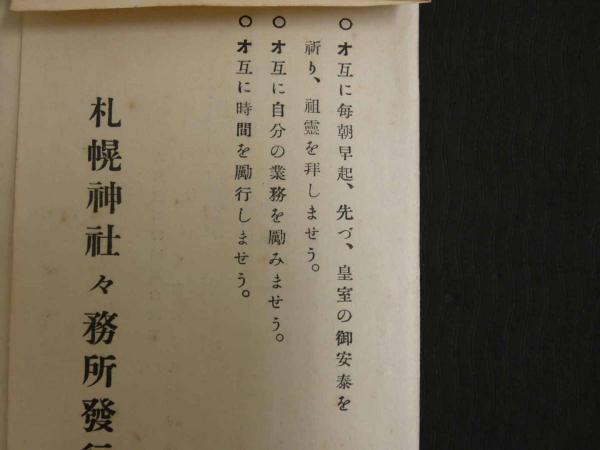 ○オ互に毎朝早起、先づ、皇室の御安泰を
祈り、祖靈を拜しませう。
○オ互に自分の業務を勵みませう。
○オ互に時間を勵行しませう。
札幌神社々務所發行